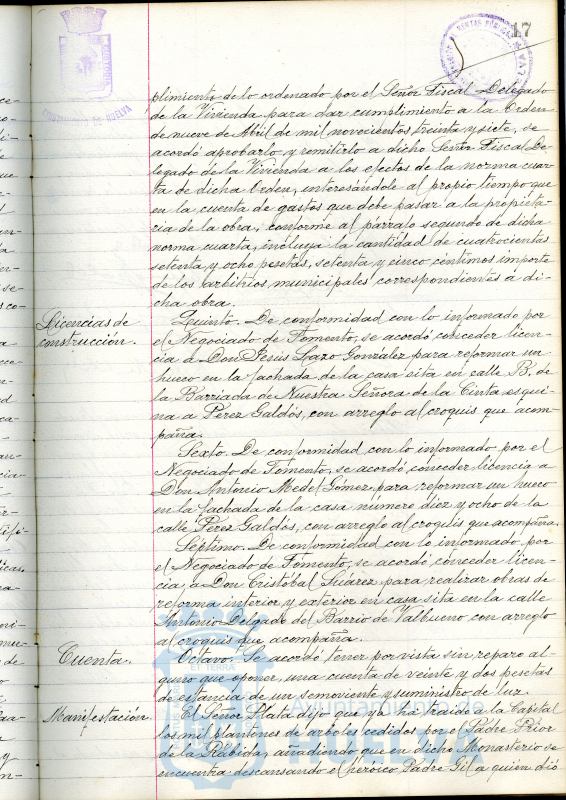 17
plimiento de lo ordenado por el Señor Fiscal Delegado
de la Vivienda para dar cumplimiento a la Orden
de nueve de Abril de mil novecientos treinta y siete, se
acordó aprobarlo y remitirlo a dicho Señor Fiscal De-
legado de la Vivienda a los efectos de la norma cuar-
ta de dicha Orden, interesándole al propio tiempo que
en la cuenta de gastos que debe pasar a la propieta-
ria de la obra, conforme al párrafo segundo de dicha
norma cuarta, incluya la cantidad de cuatrocientas
setenta y ocho pesetas, setenta y cinco céntimos importe
de los arbitrios municipales correspondientes a di-
cha obra.
Licencias de
construcción.
Quinto. De conformidad con lo informado por
el Negociado de Fomento, se acordó conceder licen-
cia a Don Jesús Lazo González para reformar un
hueco en la fachada de la casa sita en calle B. de
la Barriada de Nuestra Señora de la Cinta esqui-
na a Pérez Galdós, con arreglo al croquis que acom-
paña.
Sexto. De conformidad con lo informado por el
Negociado de Fomento, se acordó conceder licencia a
Don Antonio Medel Gómez para reformar un hueco
en la fachada de la casa número diez y ocho de la
calle Pérez Galdós, con arreglo al croquis que acompaña.
Séptimo. De conformidad con lo informado por
el Negociado de Fomento, se acordó conceder licen-
cia, a Don Cristóbal Suárez para realizar obras de
reforma interior y exterior en casa sita en la calle
Antonio Delgado del Barrio de Valbueno con arreglo
al croquis que acompaña.
Cuenta.
Octavo. Se acordó tener por vista sin reparo al-
guno que oponer, una cuenta de veinte y dos pesetas
de estancia de un semoviente y suministro de luz.
Manifestación.
El Señor Plata dijo que ya ha traido a la Capital
los mil plantines de arboles cedidos por el Padre Prior
de la Rábida, añadiendo que en dicho Monasterio se
encuentra descansando el heróico Padre Gil a quién dió
Ayuntamiento de